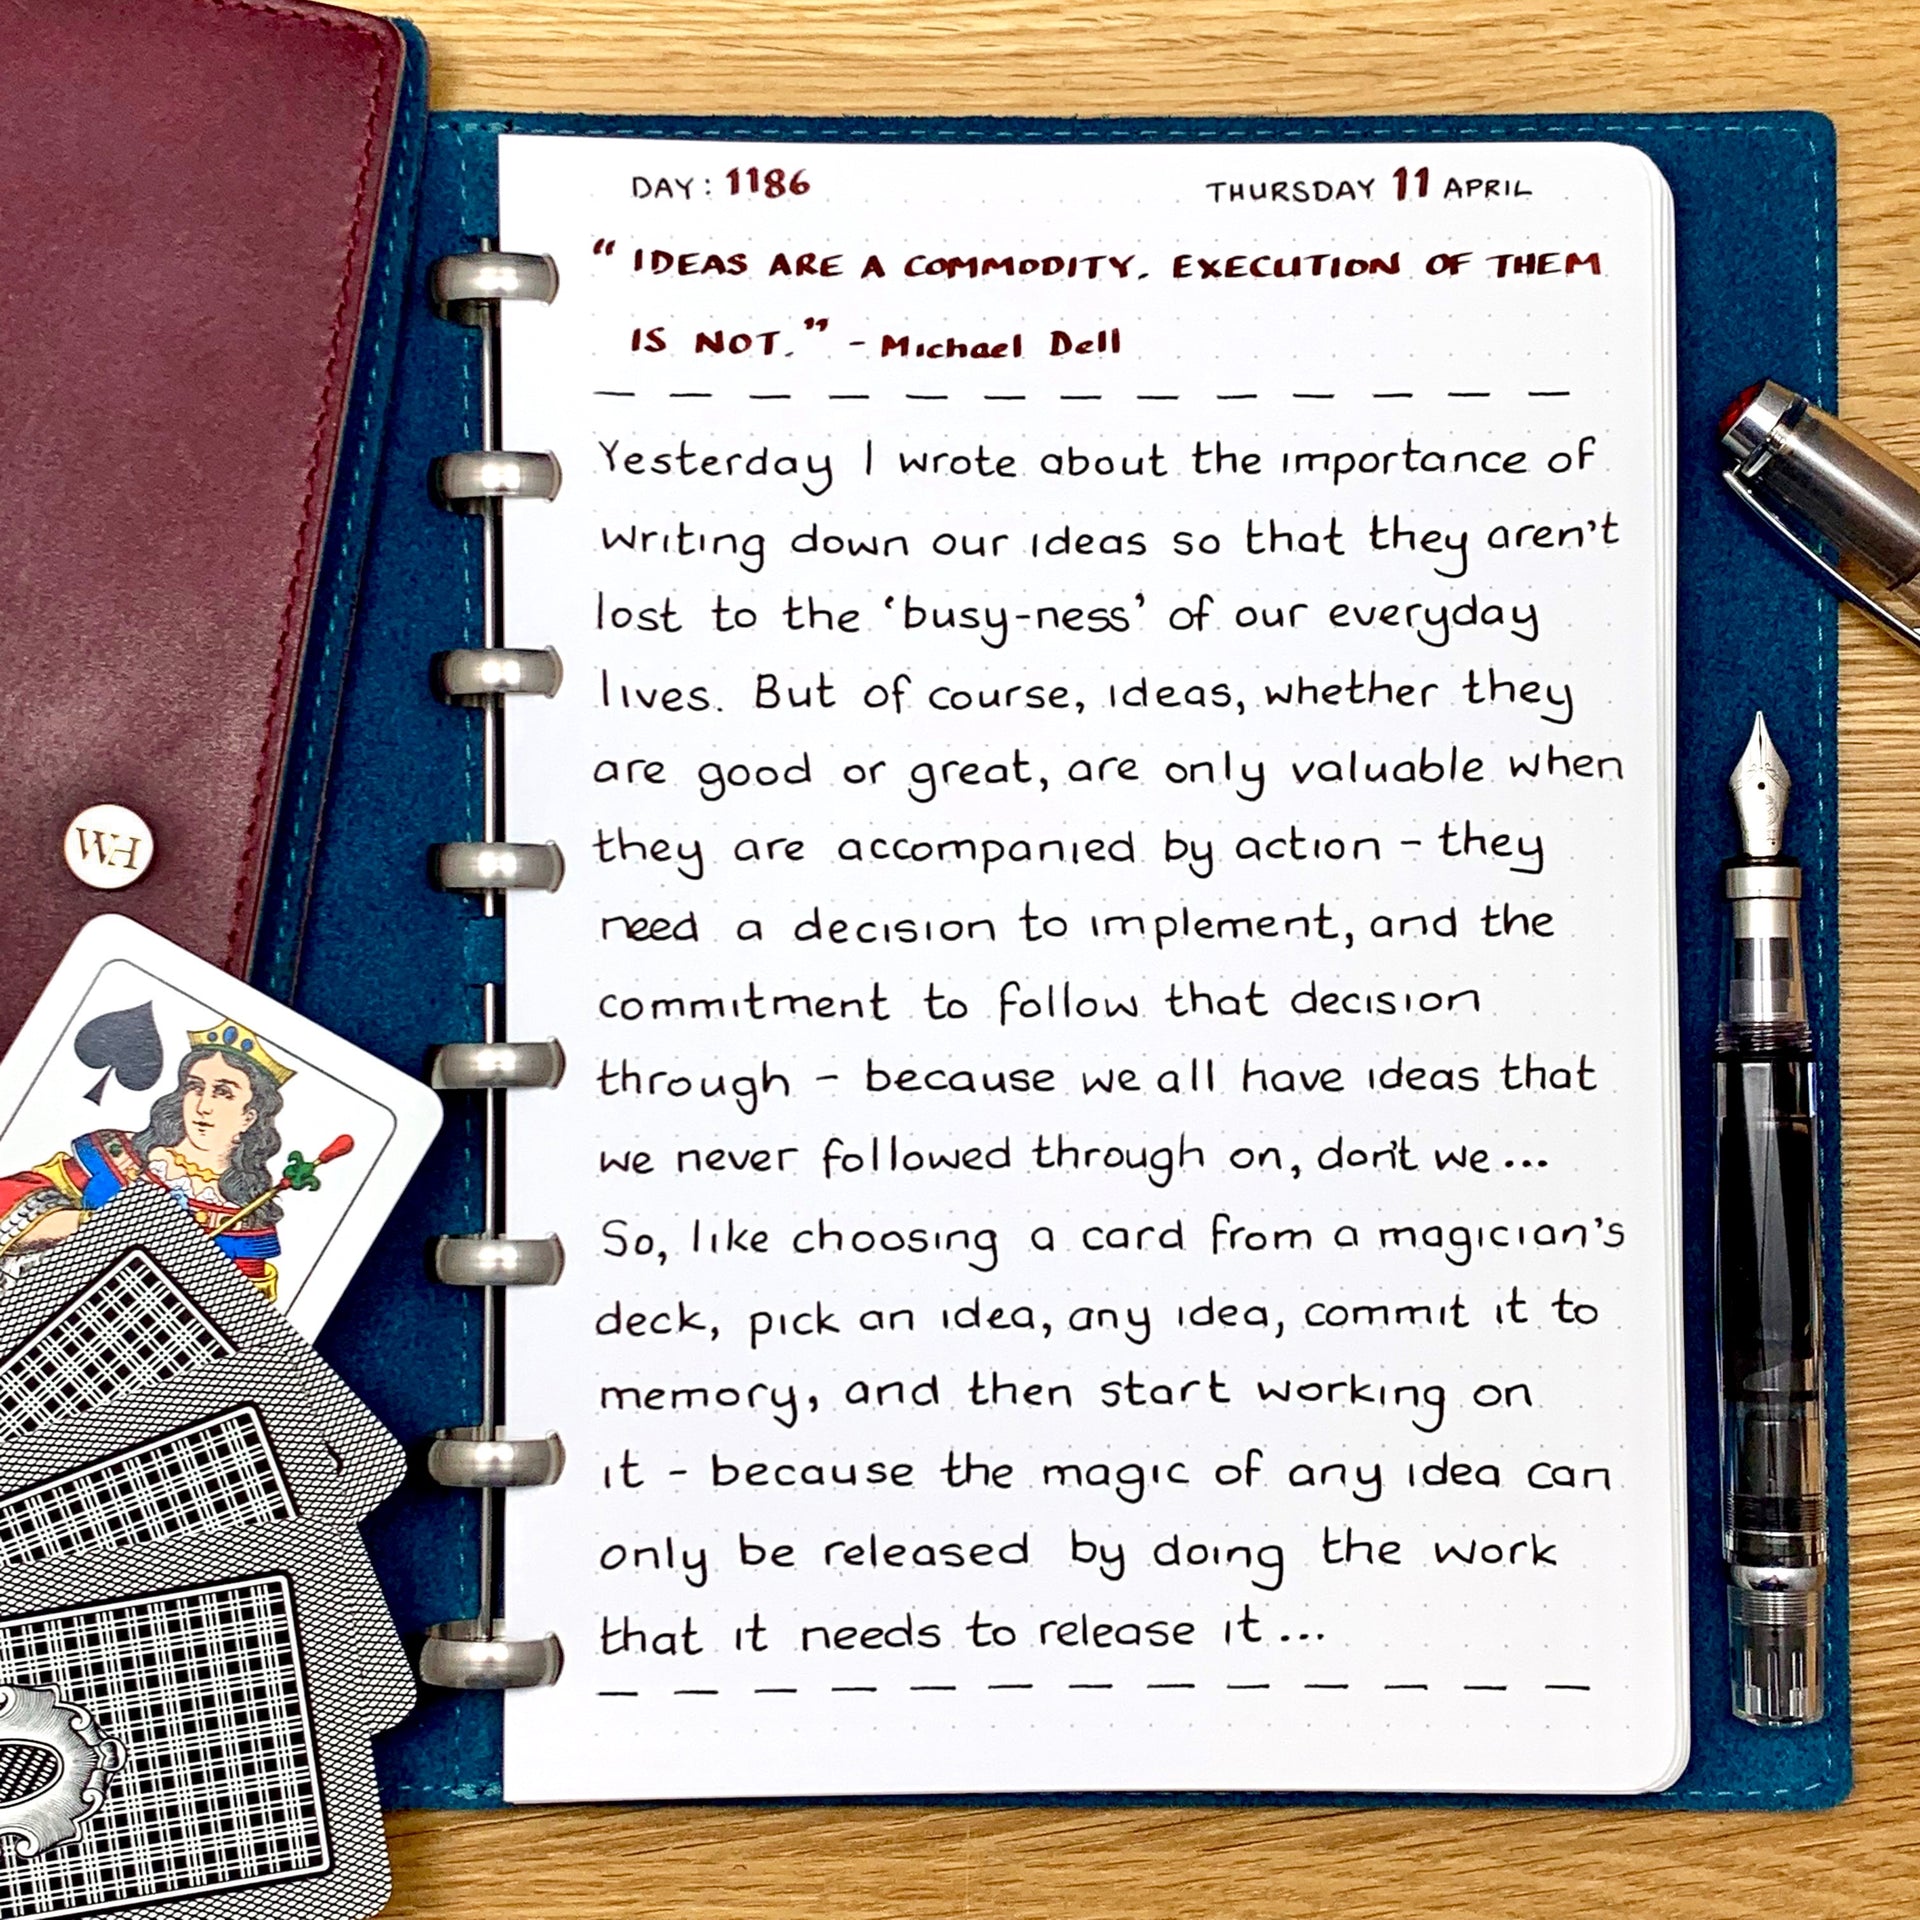 DAY: 1186 THURSDAY 11 APRIL
“IDEAS ARE A COMMODITY. EXECUTION OF THEM
IS NOT.” - Michael Dell
Yesterday I wrote about the importance of
writing down our ideas so that they aren't
lost to the ‘busy-ness’ of our everyday
lives. But of course, ideas, whether they
are good or great, are only valuable when
they are accompanied by action - they
need a decision to implement, and the
commitment to follow that decision
through - because we all have ideas that
we never followed through on, don't we...
So, like choosing a card from a magician's
deck, pick an idea, any idea, commit it to
memory, and then start working on
it - because the magic of any idea can
only be released by doing the work
that it needs to release it...
WH